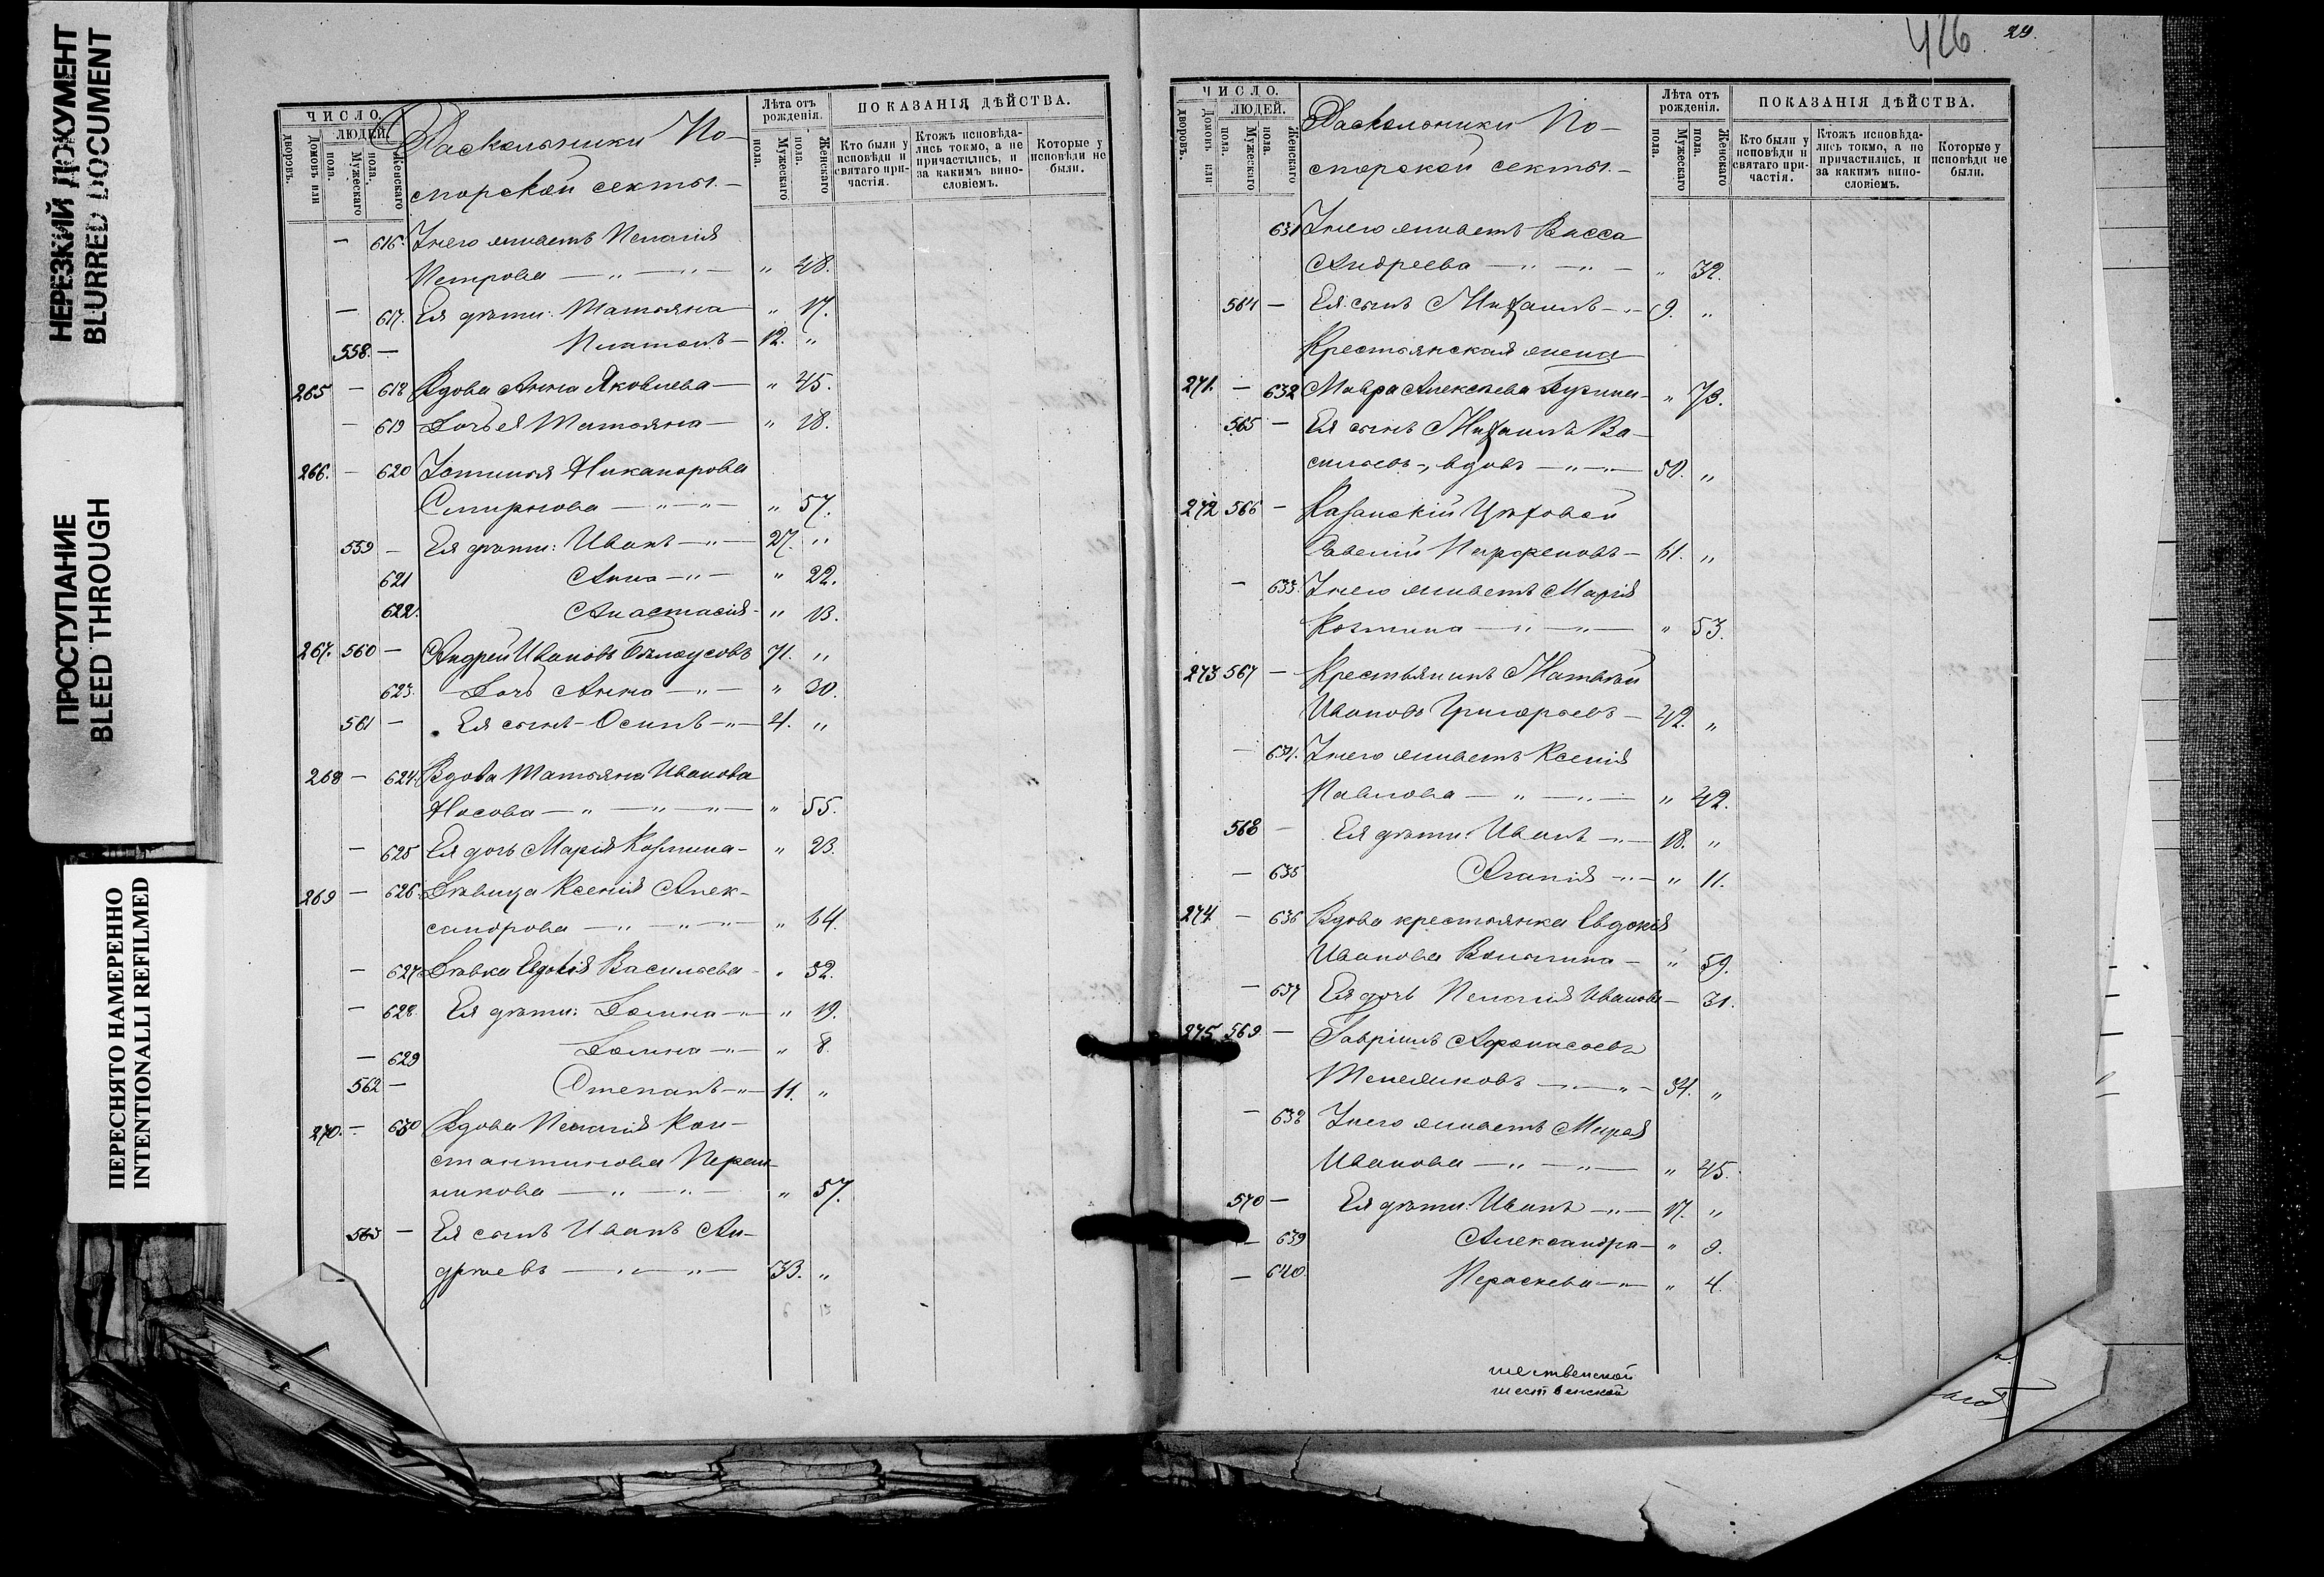 НЕРЕЗКИЙ ДОКУМЕНТ
BLURRED DOCUMENT
ПРОСТУПАНИЕ
BLEED THROUGH
ПЕРЕСНЯТО НАМЕРЕННО
INTENTIONALLI REFILMED
ЧИСЛО.
ЛЮДЕЙ.
Домовъ или дворовъ.
Мужескаго пола.
Женскаго пола.
Раскольники По-
морской секты.-
Лѣта отъ рожденія.
Мужескаго пола.
Женскаго пола.
ПОКАЗАНІЯ ДѢЙСТВА.
Кто были у исповѣди и святаго при-частія.
Ктожъ исповѣда-лись токмо, а не причастились, и за какимъ вино-словіемъ.
Которые у исповѣди не были.
- 616. У него живетъ Пелагія
Петрова - " - " - " 48.
- 617. Ея дѣти: Татьяна - " 17.
558. - Платонъ - 12. "
265 - 618 Вдова Анна Яковлева - " 45.
- 619 Дочь ея Татьяна - " 18.
266. - 620 Устинья Никанорова
Смирнова - " - " - " 57.
559 - Ея дѣти: Иванъ - " - 27. "
621 Анна - " - " 22.
622. Анастасія - " 13.
267. 560 - Андрей Ивановъ Бѣлоусовъ 71. "
623. Дочь Анна - " - " 30.
561 - Ея сынъ - Осипъ - " - 4. "
268 - 624. Вдова Татьяна Иванова
Носова - " - " - " - " 55.
- 625 Ея дочь Марія Козмина - " 23.
269 - 626. Дѣвица Ксенія Алек-
сандрова - " - " - " - " 64.
- 627 Дѣвка Евдокія Васильева - " 52.
- 628. Ея дѣти: Домна - " - " 19.
- 629 Домна - " - " 8.
562 - Степанъ - " - 11. "
270. - 630 Вдова Пелагія Кон-
стантинова
никова - " - " - " 57.
563 - Ея сынъ Иванъ Ан-
дреевъ - " - " - 33. "
426 29.
ЧИСЛО.
ЛЮДЕЙ.
Домовъ или дворовъ.
Мужескаго пола.
Женскаго пола.
Раскольники По-
морской секты.-
Лѣта отъ рожденія.
Мужескаго пола.
Женскаго пола.
ПОКАЗАНІЯ ДѢЙСТВА.
Кто были у исповѣди и святаго при-частія.
Ктожъ исповѣда-лись токмо, а не причастились, и за какимъ вино-словіемъ.
Которые у исповѣди не были.
631 У него живетъ Васса
Андреева - " - " - " 32.
564 - Ея сынъ Михаилъ - " - 9. "
Крестьянская жена
271. - 632 Мавра Алексѣева - " 73.
565 - Ея сынъ Михаилъ Ва-
сильевъ -, вдовъ - " - " - 50. "
272 566 - Казанскій Цѣховой
Савелій Парфеновъ - 61. "
- 633. У него живетъ Марія
Козмина - " - " - " 53.
273 567 - Крестьянинъ Матвѣй
Ивановъ Григорьевъ - 42. "
- 634. У него живетъ Ксенія
Павлова - " - " - " 42.
568 - Ея дѣти: Иванъ - " - 18. "
- 635 Агапія - " - " 11.
274 - 636 Вдова крестьянка Евдокія
Иванова - " 59.
- 637 Ея дочь Пелагія Иванова - 31.
275 569. - Гавріилъ Афонасьевъ
- " - " - 34. "
- 638 У него живетъ
Иванова - " - " - " 45.
570 - Ея дѣти: Иванъ - " - 17. "
- 639 Александра - " 9.
- 640. Параскева - " - " 4.
шественской
шественской